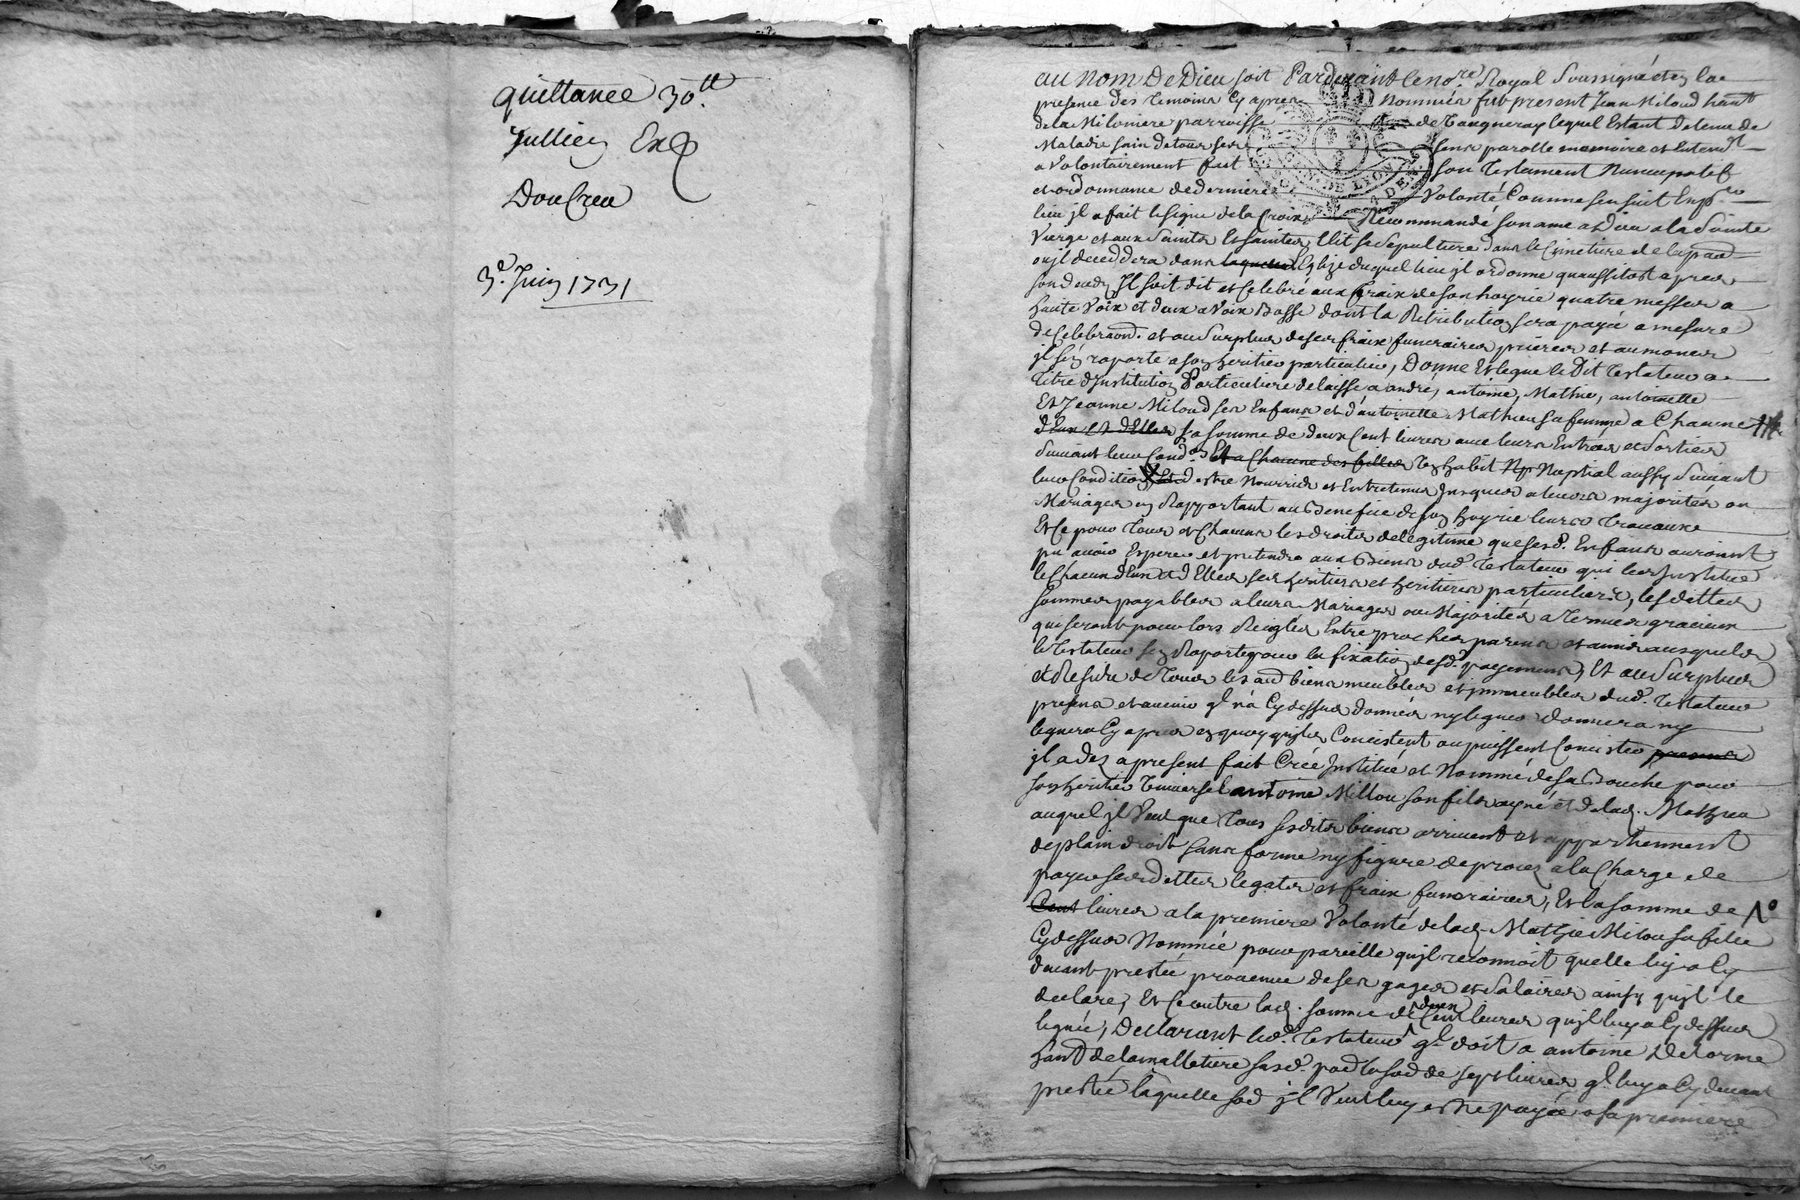 quittance 30.tt
Jullien Ex
Doucreu
3.e Juin 1731
au nom De Dieu soit Pardevant le no.re Royal Soussigné et en la
presence des Temoins Cy apres Nommés fut present Jean Miloud ha.nt
de la Miloniere parroisse de Vaugneray lequel Estant detenu de
Maladie sain de tous ses sens parolle memoire et Entend.t
a Volontairement fait son Testament Nuncupatif
et ordonnance de derniere Volonté Comme sensuit En p.er
lieu jl a fait le signe de la Croix Recommandé son ame a Dieu a la Sainte
Vierge et aux Saints Et Saintes Elit sa Sepulture dans le Cimetiere de la par.
ou jl deceddera dans laquelle Eglize duquel lieu jl ordonne qu'aussitost apres
son deceds Jl soit dit et Celebré aux fraix de son hoyrie quatre messes a
haute Voix et deux a Voix Basse dont la Retribution sera payée a mesure
de Celebraon. et au Surplus de ses fraix funeraires prieres et aumones
jl s'en raporte a son heritier particulier, Donne Et legue le Dit Testateur a
Titre d'Institution Particuliere delaisse a andré, antoine, Mathie, antoinette
Et Jeanne Miloud ses Enfans et d'antoinette Mathieu sa femme a Chacun
d'Eux Et d'Elles la somme de deux Cent livres avec leurs Entrées et Sorties
suivant leur Cond.on Et a Chacune des filles Un habit Np Nuptial aussy Suivant
leur Condition Et d'estre Nourris et Entretenus jusques a leurs majorités ou
Mariages en Rapportant au Benefice de son hoyrie leurs Travaux
Et Ce pour Tous et Chacuns les droits de legitime que sesd. Enfans auroint
pu avoir Esperer et pretendre aux Biens dud. Testateur qui les Institue
le Chacun d'Eux et d'Elles ses heritiers et heritieres particulieres, lesdittes
sommes payables a leurs Mariages ou Majorités a Termes gracieux
qui seront pour lors Reigler Entre proches parens et amis ausquels
le Testateur s'en Raporte pour la fixation desd. payemens, Et au Surplus
et Residu de Tous les aud biens meubles et jmmeubles dud. Testateur
presens et avenir q.l n'a Cy dessus donnés ny legués donnera ny
leguera Cy apres en quoy qu'jls Concistent ou puissent Concister
jl a des a present fait Créé Institué et Nommé de sa Bouche pour
son heritier Universel antoine Millou son fils ayné et de lad. Mathieu
auquel jl Veut que Tous sesdits biens arrivent et appartiennent
de plain droit sans forme ny figure de proces a la Charge de
payer ses dettes legats et fraix funeraires, Et la somme de
Cent livres a la premiere Volonté de lad. Mathie Milou sa fille
Cy dessus Nommée pour pareille qu'jl reconnoit quelle luy a Cy
devant prestée provenue de ses gages et Salaires ainsy qu'jl le
declare, Et Ce outre lad. somme de deux Cent livres qu'jl luy a Cy dessus
legué, Declarant led. Testateur q.l doit a antoine Delorme
ha.nt de la malletiere
prestée laquelle jl Veut luy estre payée a sa premiere